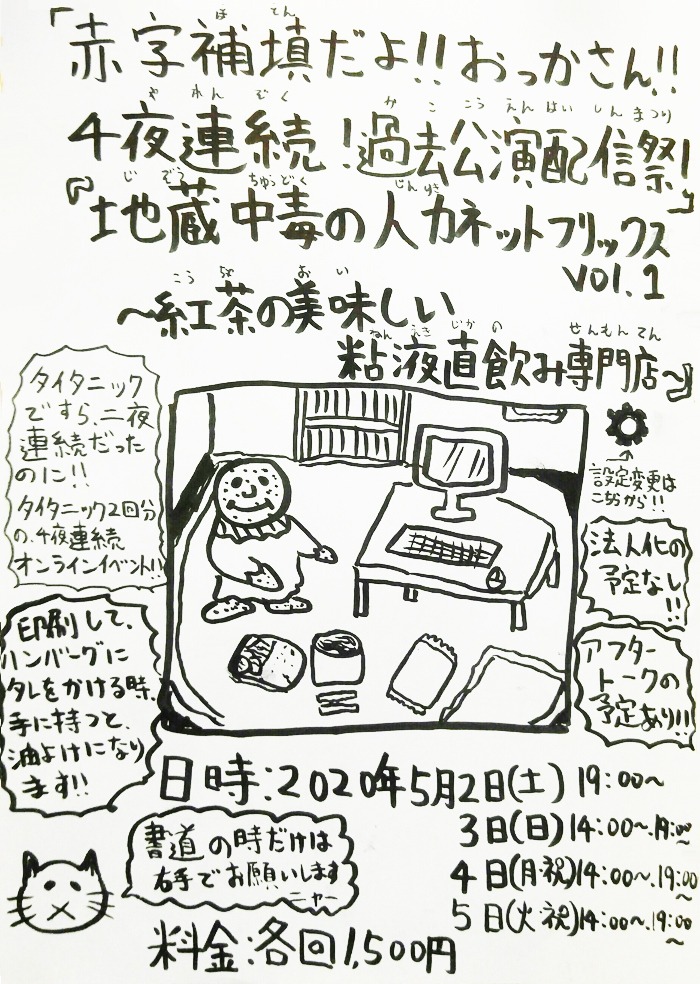 「赤字補填だよ!!おっかさん!!
ほてん
四夜連続!過去公演配信祭!」
やれんぞく かここうえんはいしんまつり
『地蔵中毒の人力ネットフリックス
じぞうちゅうどく じんりき
VOL.1
～紅茶の美味しい
こうちゃ おい
粘液直飲み専門店～』
ねんえきじかの せんもんてん
タイタニック
ですら、二夜
連続だった
のに!!
タイタニック2回分
の、4夜連続
オンラインイベント!!
設定変更は
こちらから!!
法人化の
予定なし!!
アフター
トークの
予定あり!!!
印刷して、
ハンバーグに
タレをかける時、
手に持つと、
油よけになり
ます!!
日時:2020年5月2日(土) 19:00～
3日(日)14:00～、19:00～
4日(月・祝)14:00～、19:00～
5日(火・祝)14:00～、19:00～
書道の時だけは
右手でお願いします
ニャー
料金:各回1,500円